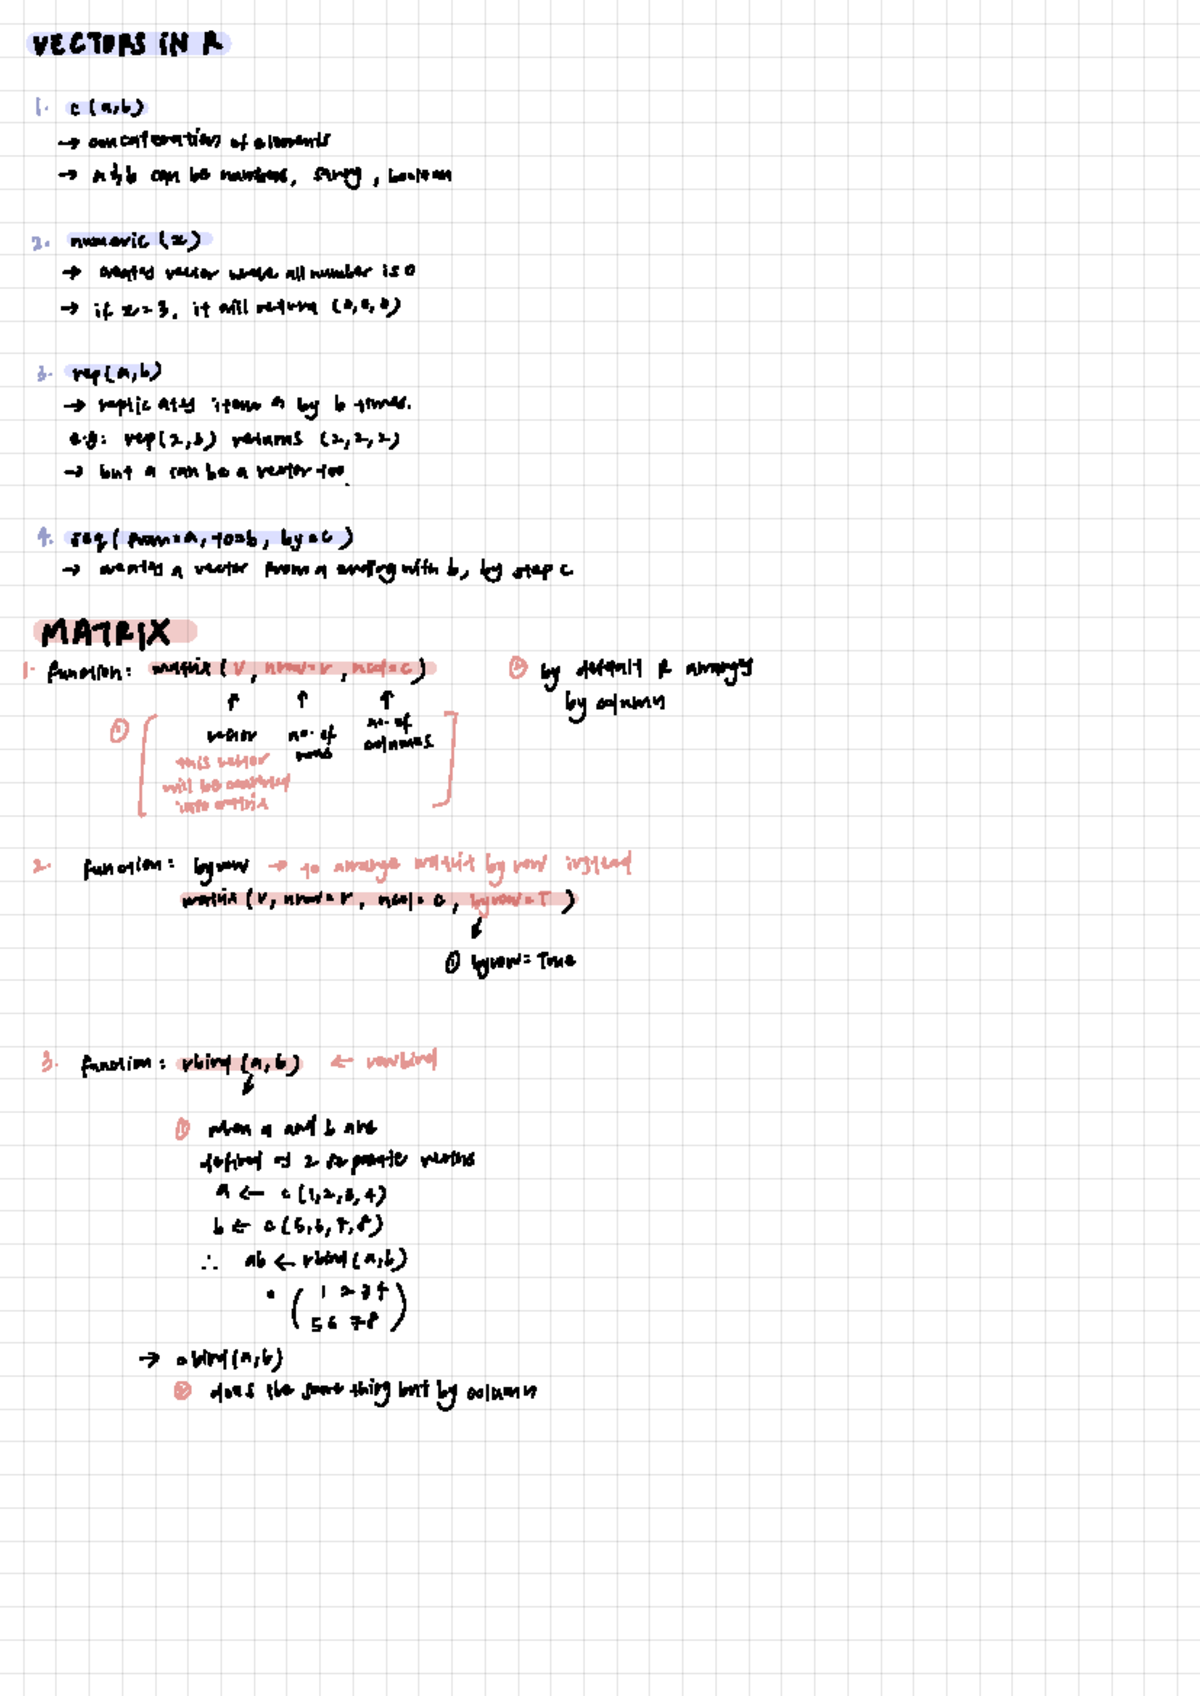 VECTORS IN R
1. c (a,b)
→ concatenation of elements
→ a & b can be numbers, string, boolean
2. numeric (x)
→ created vector where all number is 0
→ if x=3, it will return (0,0,0)
3. rep(a,b)
→ replicates items a by b times.
e.g: rep(2,3) returns (2,2,2)
→ but a can be a vector too
4. seq( from=a, to=b, by=c )
→ creates a vector from a ending with b, by step c
MATRIX
1. function: matrix( v, nrow=r, ncol=c )
② by default R arranges
by column
↑ ↑ ↑
① vector no. of rows no. of columns
this vector
will be converted
into matrix
2. function: byrow → to arrange matrix by row instead
matrix (v, nrow=r, ncol=c, byrow=T )
① byrow=True
3. function: rbind (a,b) ← rowbind
① when a and b are
defined as 2 separate vectors
a ← c(1,2,3,4)
b ← c(5,6,7,8)
∴ ab ← rbind(a,b)
= ( 1 2 3 4
5 6 7 8 )
→ cbind(a,b)
② does the same thing but by column